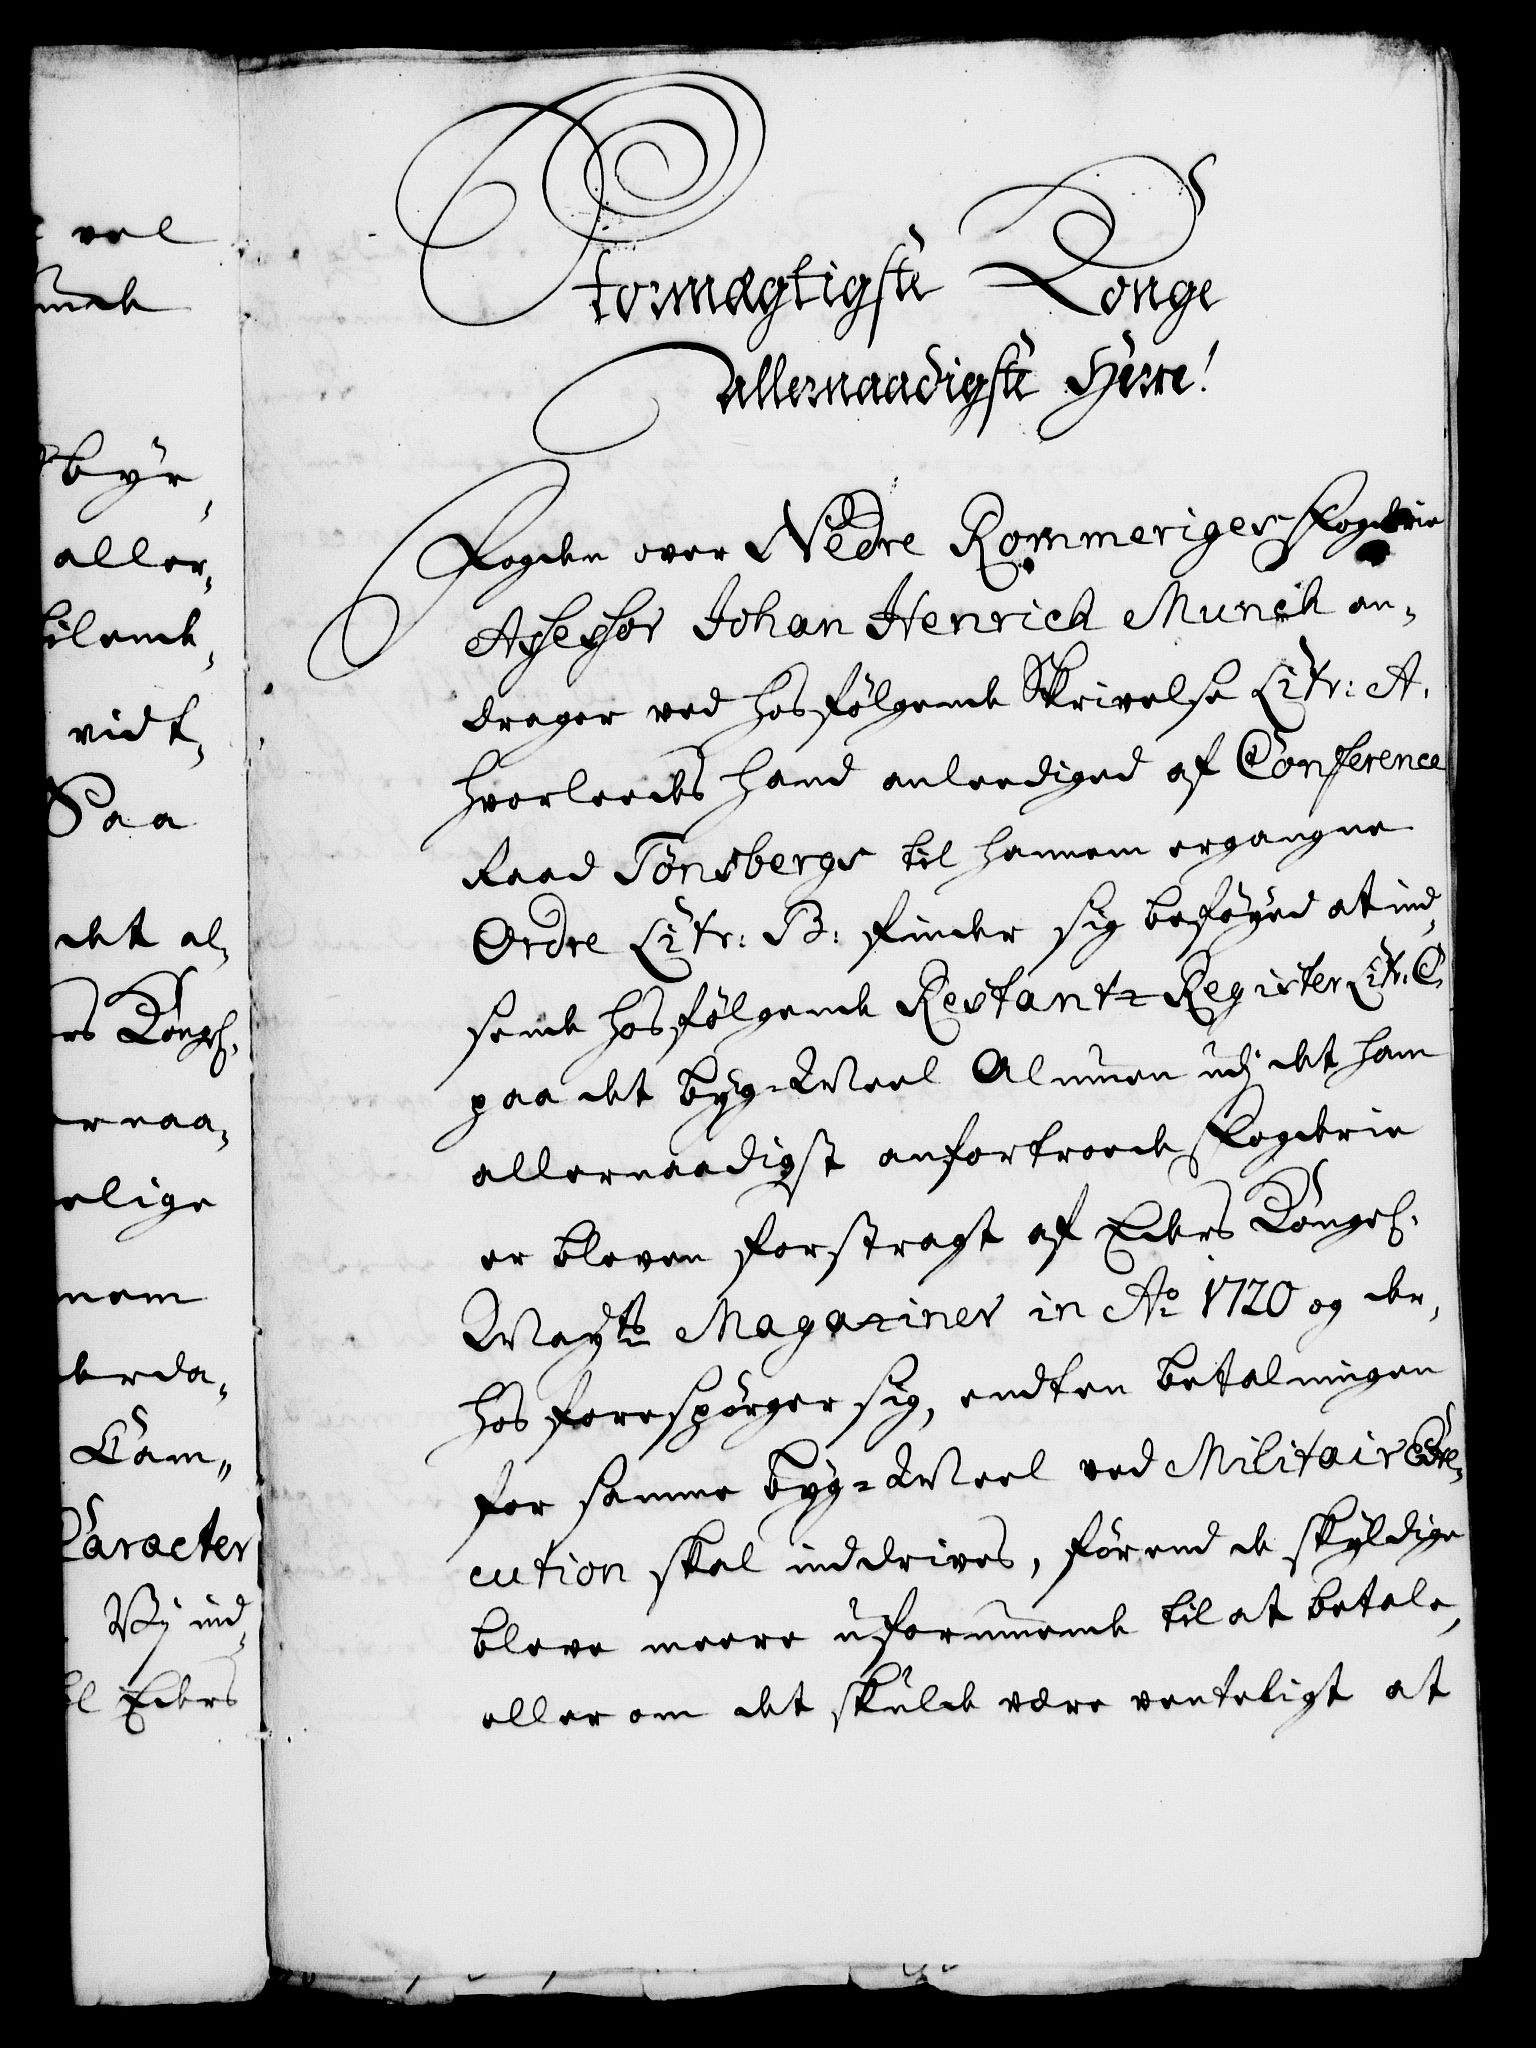 vel
byr,
aller,
vidt,
Saa
det al,
rs Kongel.
ernaa,
elige
nem
derda,
Cam,,
Caracter
Vj ind,
Eders
Stormægtigste Konge
allernaadigste Herre!
Fogden over Nedre Rommeriges Fogderie
Assessor Johan Henrich Munch an,
drager ved hosfölgende Skrivelse Litr: A.
hvorleedes hand anleediged af Conference
Raad Tonsbergs til hannem ergangne
Ordre Litr: B: finder sig beföyed at ind,
sende hosfölgende Restantz Register Litr. C.
paa det byg-Meel Almuen udj det ham
allernaadigst anfortroede Fogderie
er bleven forstragt af Eders Kongel.
Mayts Magaziner in Ao 1720 og der,
hos forespörger sig, endten betalningen
for samme byg-Meel ved Militair Exe,
cution skal inddrives, förend de skyldige
bleve meere uformuende til at betale,
eller om det skulde være venteligt at